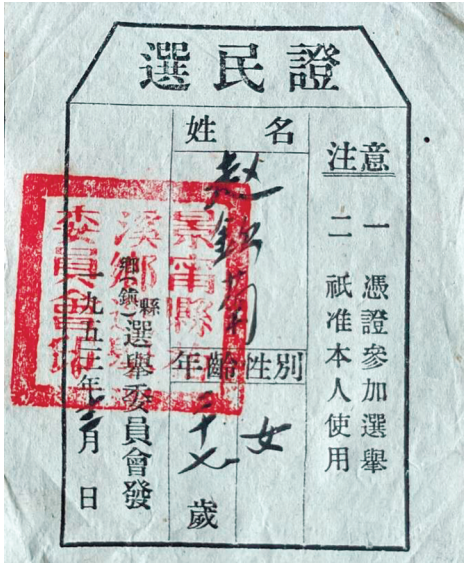 選民證
注意
一 憑證參加選舉
二 祇准本人使用
姓名
赵
性別
女
年齡
三十七歲
縣
鄉(鎮)選舉委員會發
一九五三年十二月 日
景甯縣
溪鄉選舉
委員會